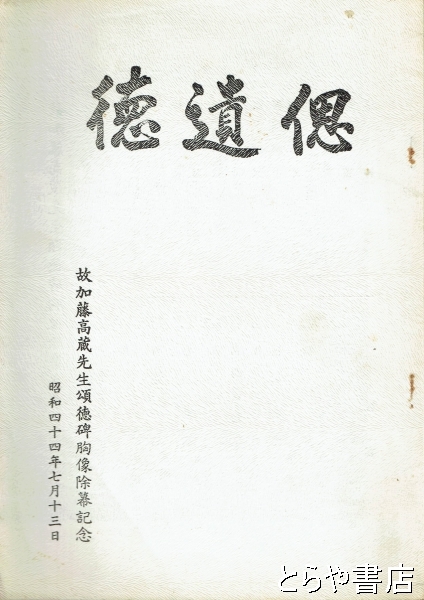 偲遺徳
故加藤高蔵先生頌徳碑胸像除幕記念
昭和四十四年七月十三日
とらや書店